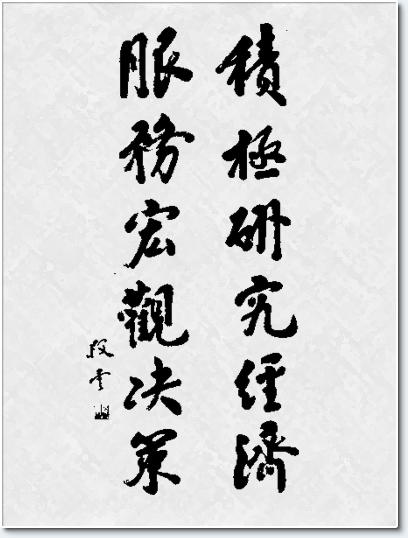 積極研究經濟
服務宏觀决策
段雲